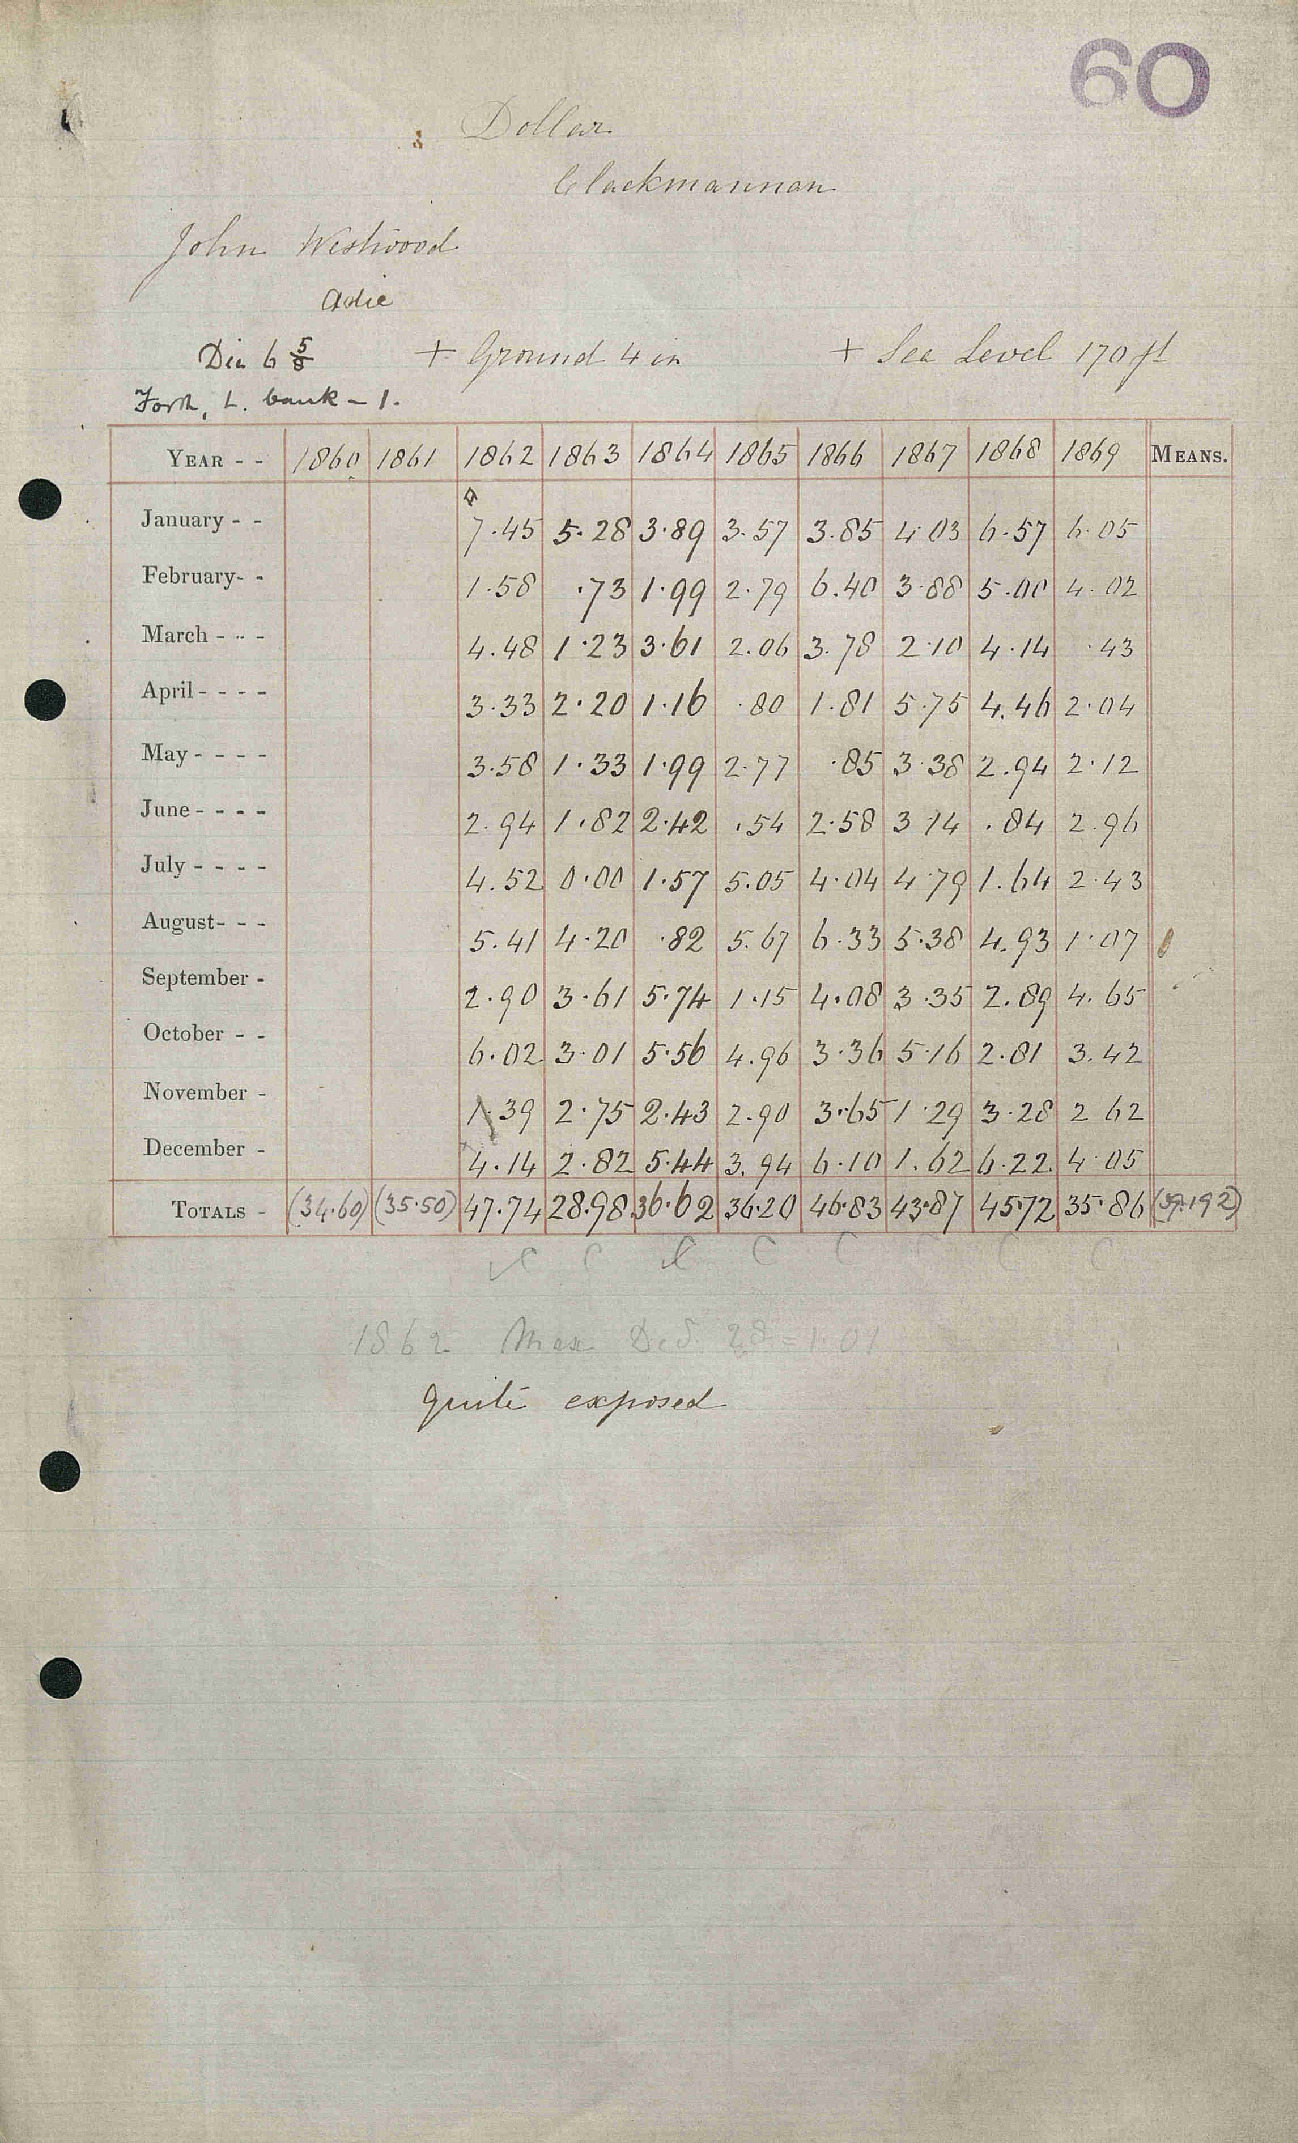 60
Dollar
Clackmannan
John Westwood
Adie
Dia 6 5/8 + Ground 4 in + Sea Level 170 ft
Forth, L. bank - 1.
YEAR - - 1860 1861 1862 1863 1864 1865 1866 1867 1868 1869 MEANS.
January - - 7.45 5.28 3.89 3.57 3.85 4.03 6.57 6.05
February- - 1.58 .73 1.99 2.79 6.40 3.88 5.00 4.02
March - - - 4.48 1.23 3.61 2.06 3.78 2.10 4.14 .43
April - - - - 3.33 2.20 1.16 .80 1.81 5.75 4.46 2.04
May - - - - 3.58 1.33 1.99 2.77 .85 3.38 2.94 2.12
June - - - - 2.94 1.82 2.42 .54 2.58 3.14 .84 2.96
July - - - - 4.52 0.00 1.57 5.05 4.04 4.79 1.64 2.43
August- - - 5.41 4.20 .82 5.67 6.33 5.38 4.93 1.07
September - 2.90 3.61 5.74 1.15 4.08 3.35 2.89 4.65
October - - 6.02 3.01 5.56 4.96 3.36 5.16 2.81 3.42
November - 1.39 2.75 2.43 2.90 3.65 1.29 3.28 2.62
December - 4.14 2.82 5.44 3.94 6.10 1.62 6.22 4.05
TOTALS - (34.60) (35.50) 47.74 28.98 36.62 36.20 46.83 43.87 45.72 35.86 (39.192)
C C C C C C C C
1862 Max 28 = 1.01
Quite exposed